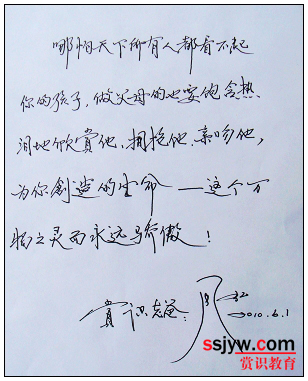 哪怕天下所有人都看不起
你的孩子,做父母的也要饱含热
泪地欣赏他、拥抱他、亲吻他,
为你創造的生命——这个万
物之灵而永远骄傲!
赏识老爸:
2010.6.1
ssjyw.com
赏识教育